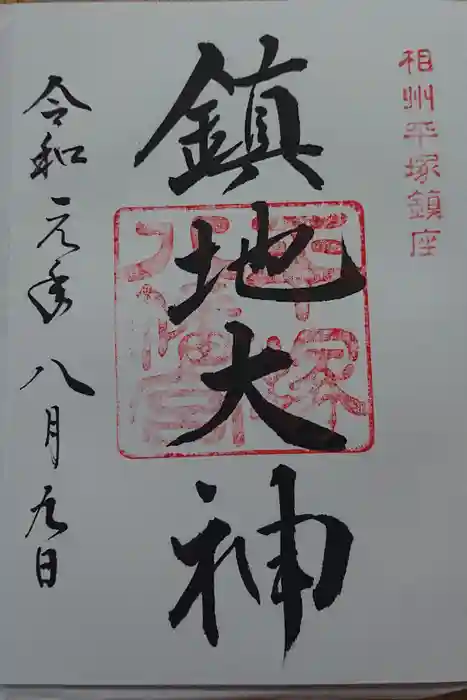 相州平塚鎮座
鎮地大神
平塚
八幡宮
令和元年八月九日